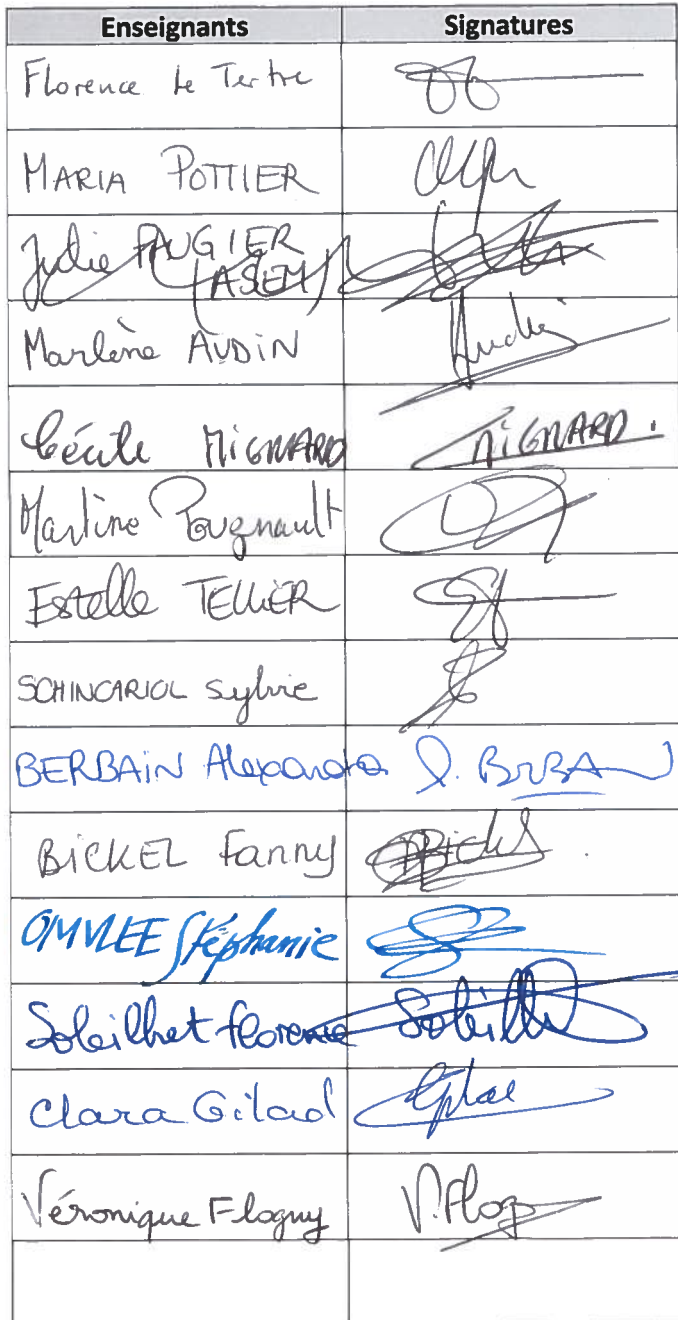 Enseignants Signatures
Florence Le Tertre
MARIA POTTIER
Julie FAUGIER
(ASEM)
Marlène AUDIN Audin
Cécile MIGNARD MIGNARD.
Martine Pougnault
Estelle TELLIER
SCHINCARIOL Sylvie
BERBAIN Alexandra
BICKEL Fanny Bickel
OMVLEE Stéphanie
Soleilhet Florence
Clara Gilad
Véronique Flogny V.Flog